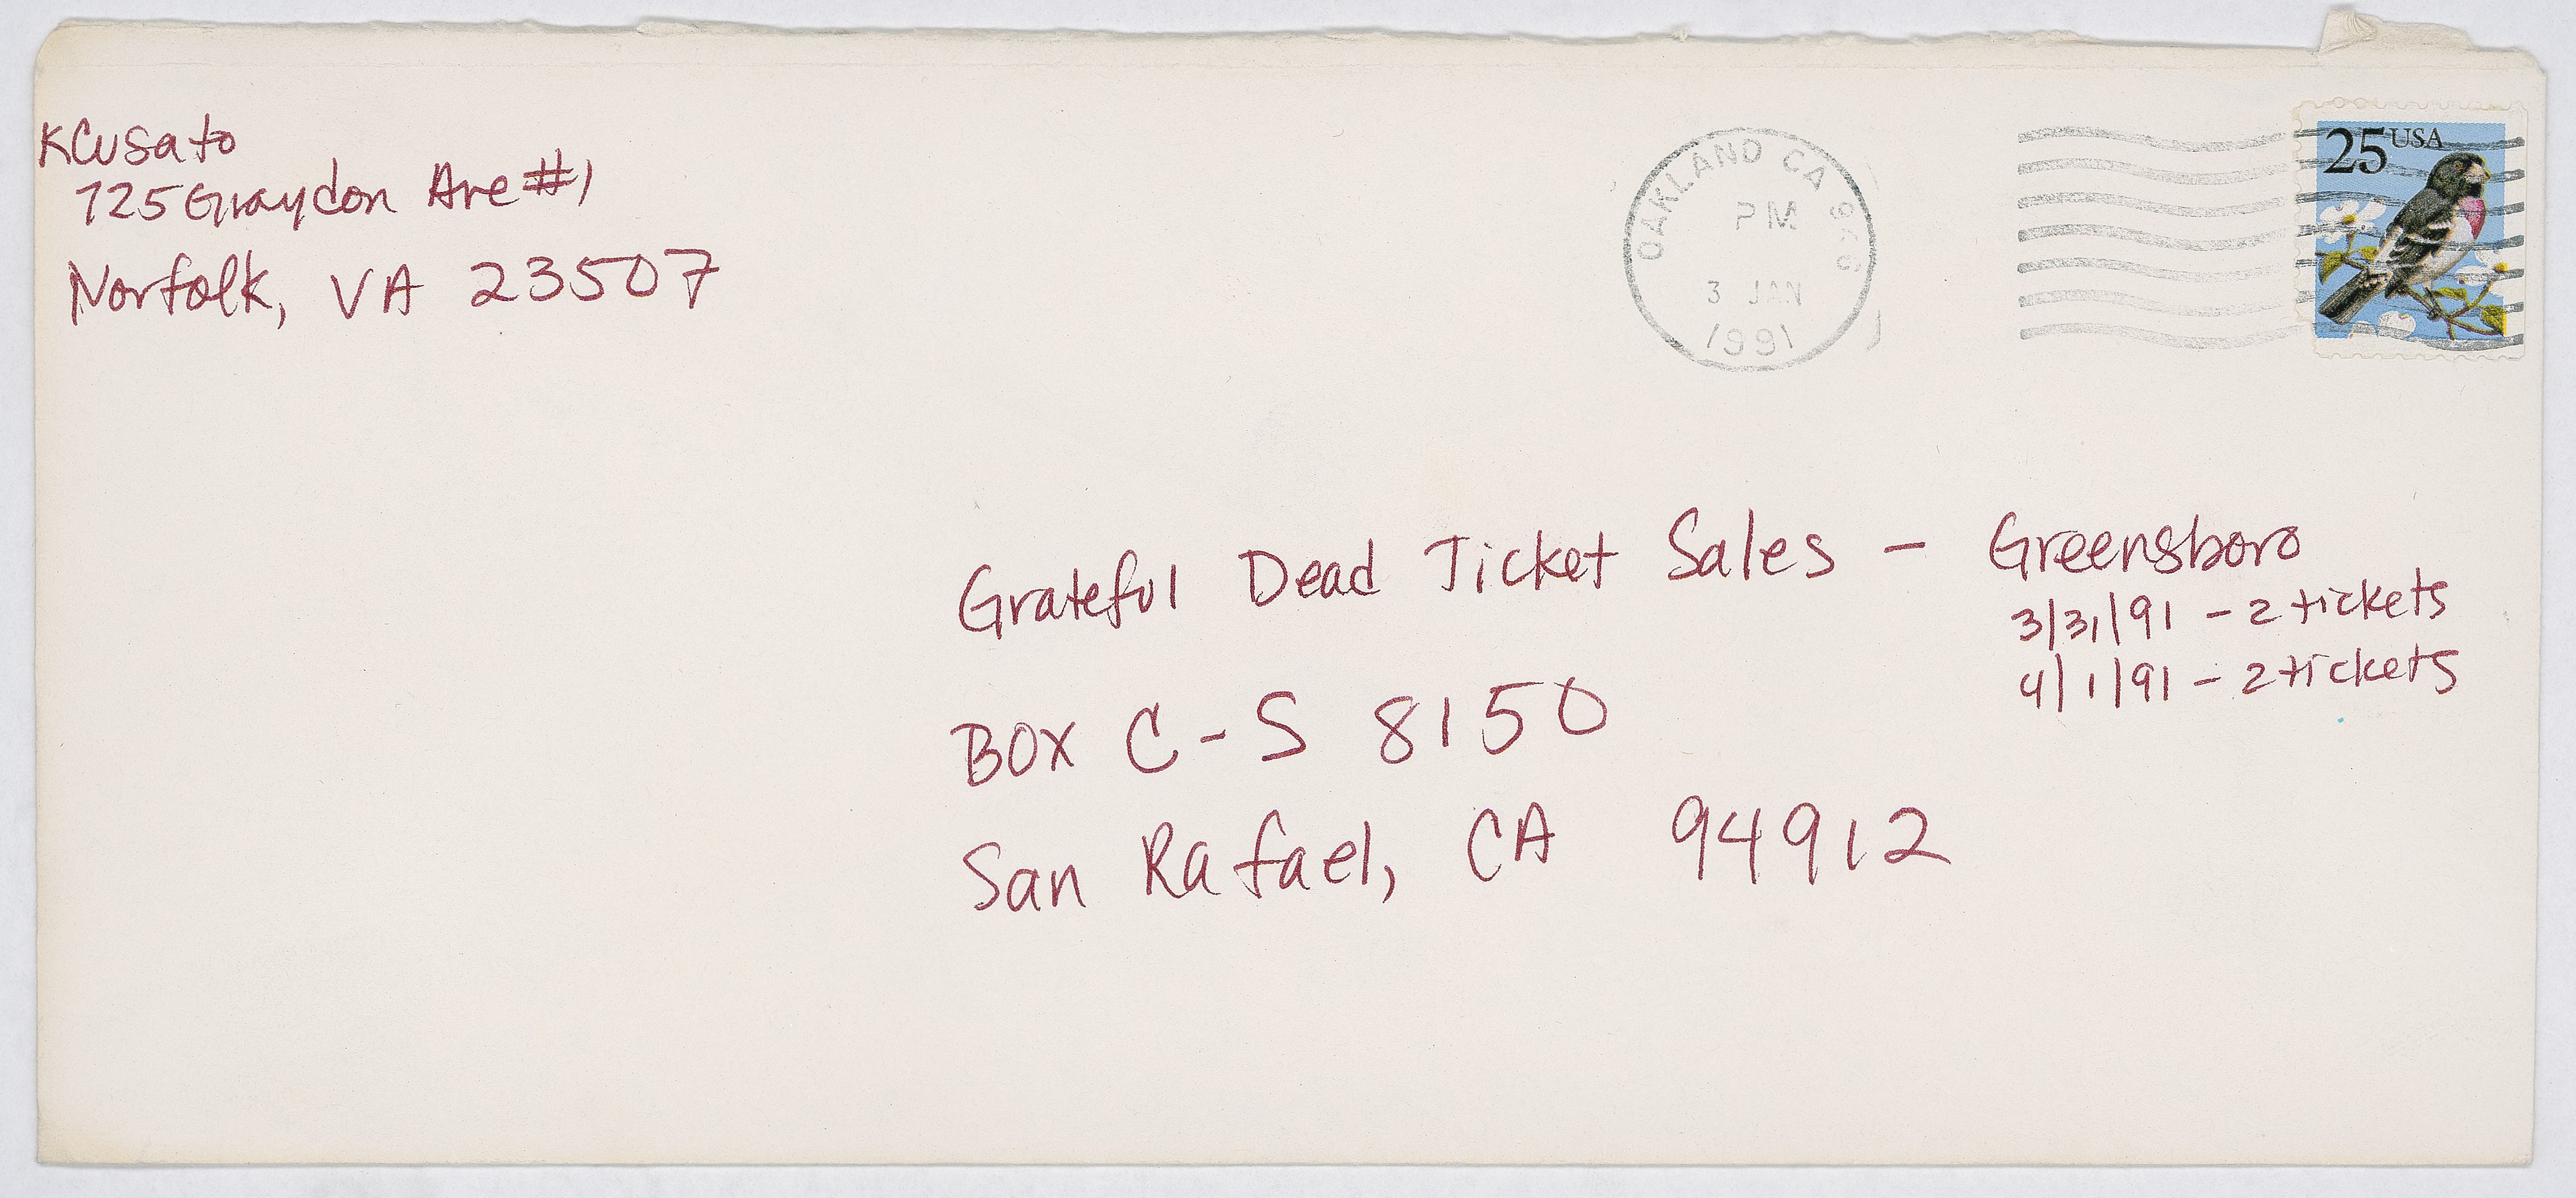 KCusato
725 Graydon Ave #1
Norfolk, VA 23507
OAKLAND CA 946
PM
3 JAN
1991
25 USA
Grateful Dead Ticket Sales - Greensboro
3/31/91 - 2 tickets
4/1/91 - 2 tickets
BOX C-S 8150
San Rafael, CA 94912